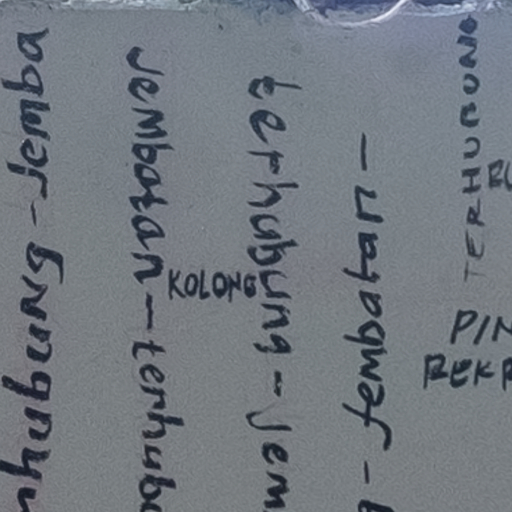 hubung-jemba
Jembatan-terhubu
KOLONG
terhubung-Jem
- jembatan -
TERHUBUNG
PIN